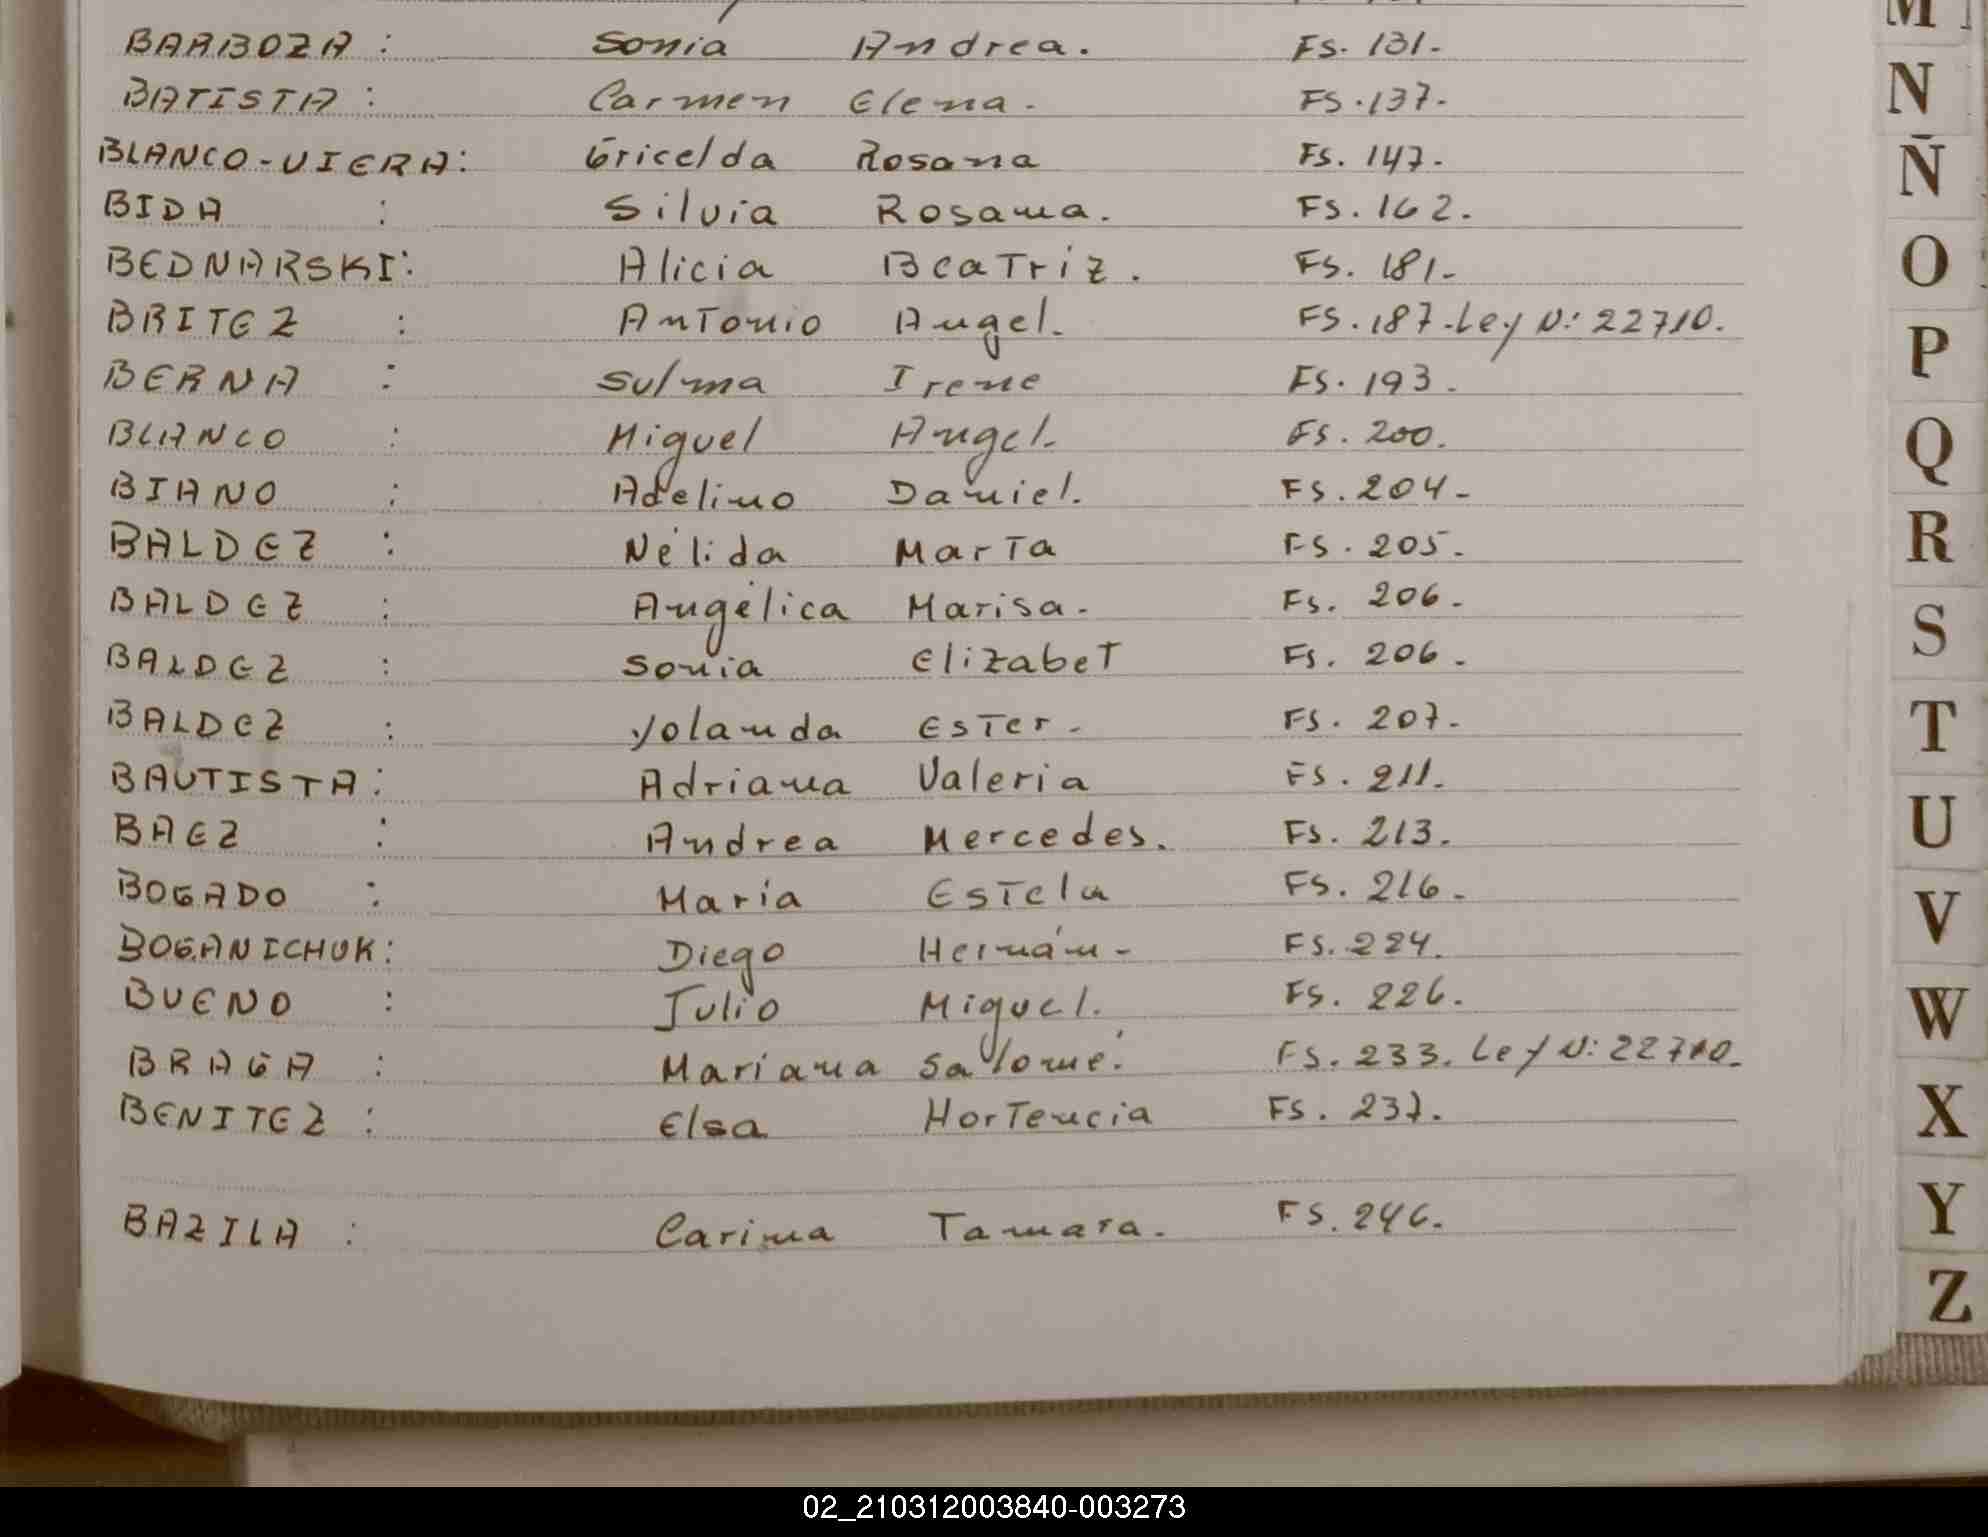 BARBOZA : Sonia Andrea. FS. 131.
BATISTA : Carmen Elena. FS. 137.
BLANCO-VIERA: Gricelda Rosana FS. 147.
BIDA : Silvia Rosana. FS. 162.
BEDNARSKI: Alicia Beatriz. FS. 181.
BRITEZ : Antonio Angel. FS. 187. Ley N: 22710.
BERNA : Sulma Irene FS. 193.
BLANCO : Miguel Angel. FS. 200.
BIANO : Adelino Daniel. FS. 204.
BALDEZ : Nélida Marta FS. 205.
BALDEZ : Angélica Marisa. FS. 206.
BALDEZ : Sonia Elizabet FS. 206.
BALDEZ : Yolanda Ester. FS. 207.
BAUTISTA: Adriana Valeria FS. 211.
BAEZ : Andrea Mercedes. FS. 213.
BOGADO : María Estela FS. 216.
BOGANICHUK: Diego Hernán. FS. 224.
BUENO : Julio Miguel. FS. 226.
BRAGA : Mariana Salomé. FS. 233. Ley N: 22710.
BENITEZ : Elsa Hortencia FS. 237.
BAZILA : Carina Tamara. FS. 246.
M
N
Ñ
O
P
Q
R
S
T
U
V
W
X
Y
Z
02_210312003840-003273